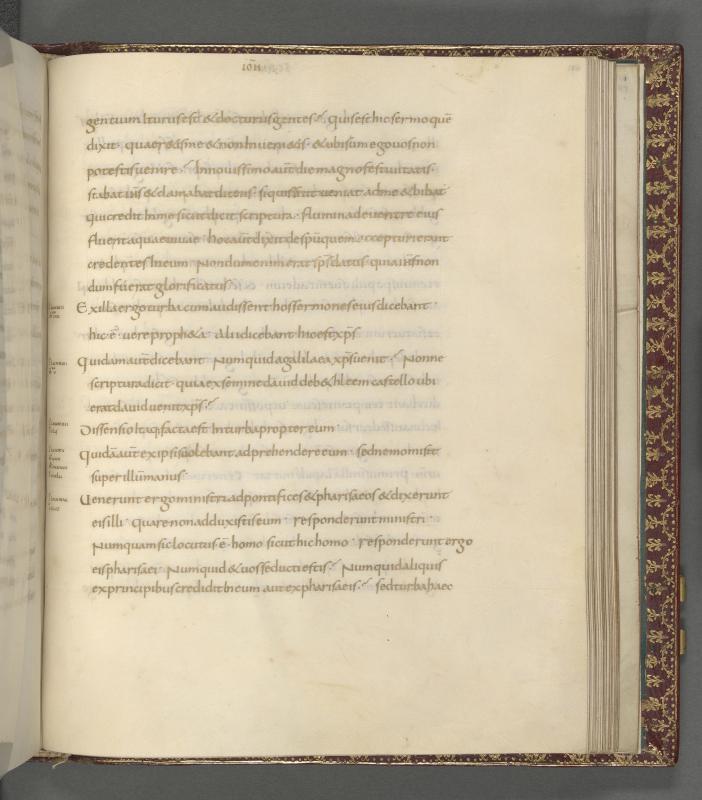 IOH
gentium Iturusest & docturusgentes. quisesthicsermoquē
dixit. quaeretisme & nonInuenietis. & ubisum egouosnon
potestisuenire. Innouissimo autē die magnofestiuitatis
stabat iħs & clamabat dicens. siquissitit ueniat adme & bibat
quicredit Inme sicutdicit scriptura. fluminadeuentre eius
fluentaquaeuiuae hocautē dixit despūquem accepturierant
credentesIneum Nondumenimerat spsdatus quiaiħsnon
dumfuerat glorificatus
Exillaergoturba cumaudissent hossermoneseiusdicebant.
hic ē uere proph&a. Aliidicebant hicestxps
Quidamautēdicebant Numquidagalilaea xpsuenit. Nonne
scripturadicit quiaexsemine dauid & debethleem castelloubi
eratdauiduenitxps.
DissensioItaq; factaest Inturbapropter eum.
Quidāautē exipsisuolebant adprehendereeum. sednemomisit
superillummanus.
Uenerunt ergoministri adpontifices & pharisaeos & dixerunt
eisilli. quarenonadduxistiseum responderuntministri.
Numquamsiclocutus ē homo sicuthichomo. responderunt ergo
eispharisaei Numquid & uosseductiestis. Numquidaliquis
exprincipibuscrediditIneum aut expharisaeis. sedturbahaec